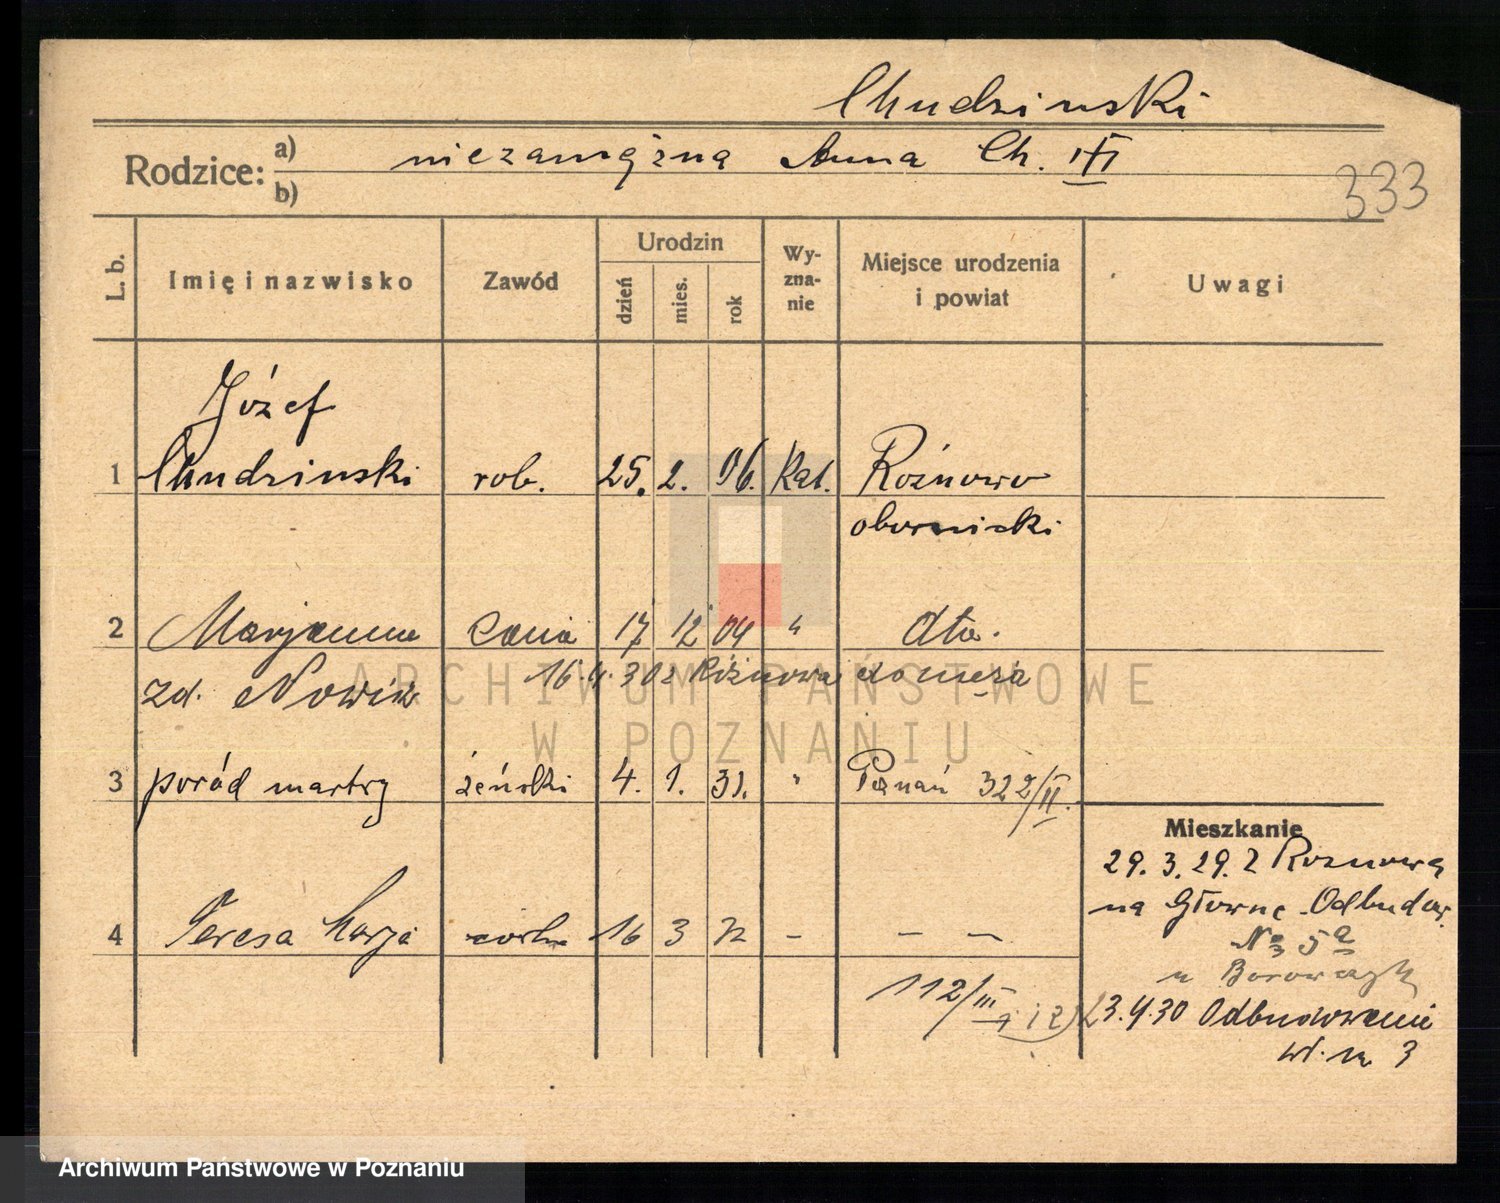 Chudzinski
Rodzice: a) niezamężna Anna Ch. III
b)
333
L. b.
Imię i nazwisko
Zawód
Urodzin
dzień
mies.
rok
Wy-
zna-
nie
Miejsce urodzenia
i powiat
Uwagi
Józef
1 Chudzinski rob. 25. 2. 06. kat. Rożnowo
obornicki
2 Marjanna żona 17 12 04 " dto.
zd. Nowik 16.4.30 z Rożnowa do męża
3 poród martwy żeński 4. 1. 31. " Poznań 322/II.
Mieszkanie
29. 3. 29. z Rożnowa
na Główne - Odbudow.
№ 5a
4 Teresa Marja córka 16 3 32 - — —
112/III
3.4.30 Odbudowanie
3
ARCHIWUM PAŃSTWOWE
W POZNANIU
Archiwum Państwowe w Poznaniu